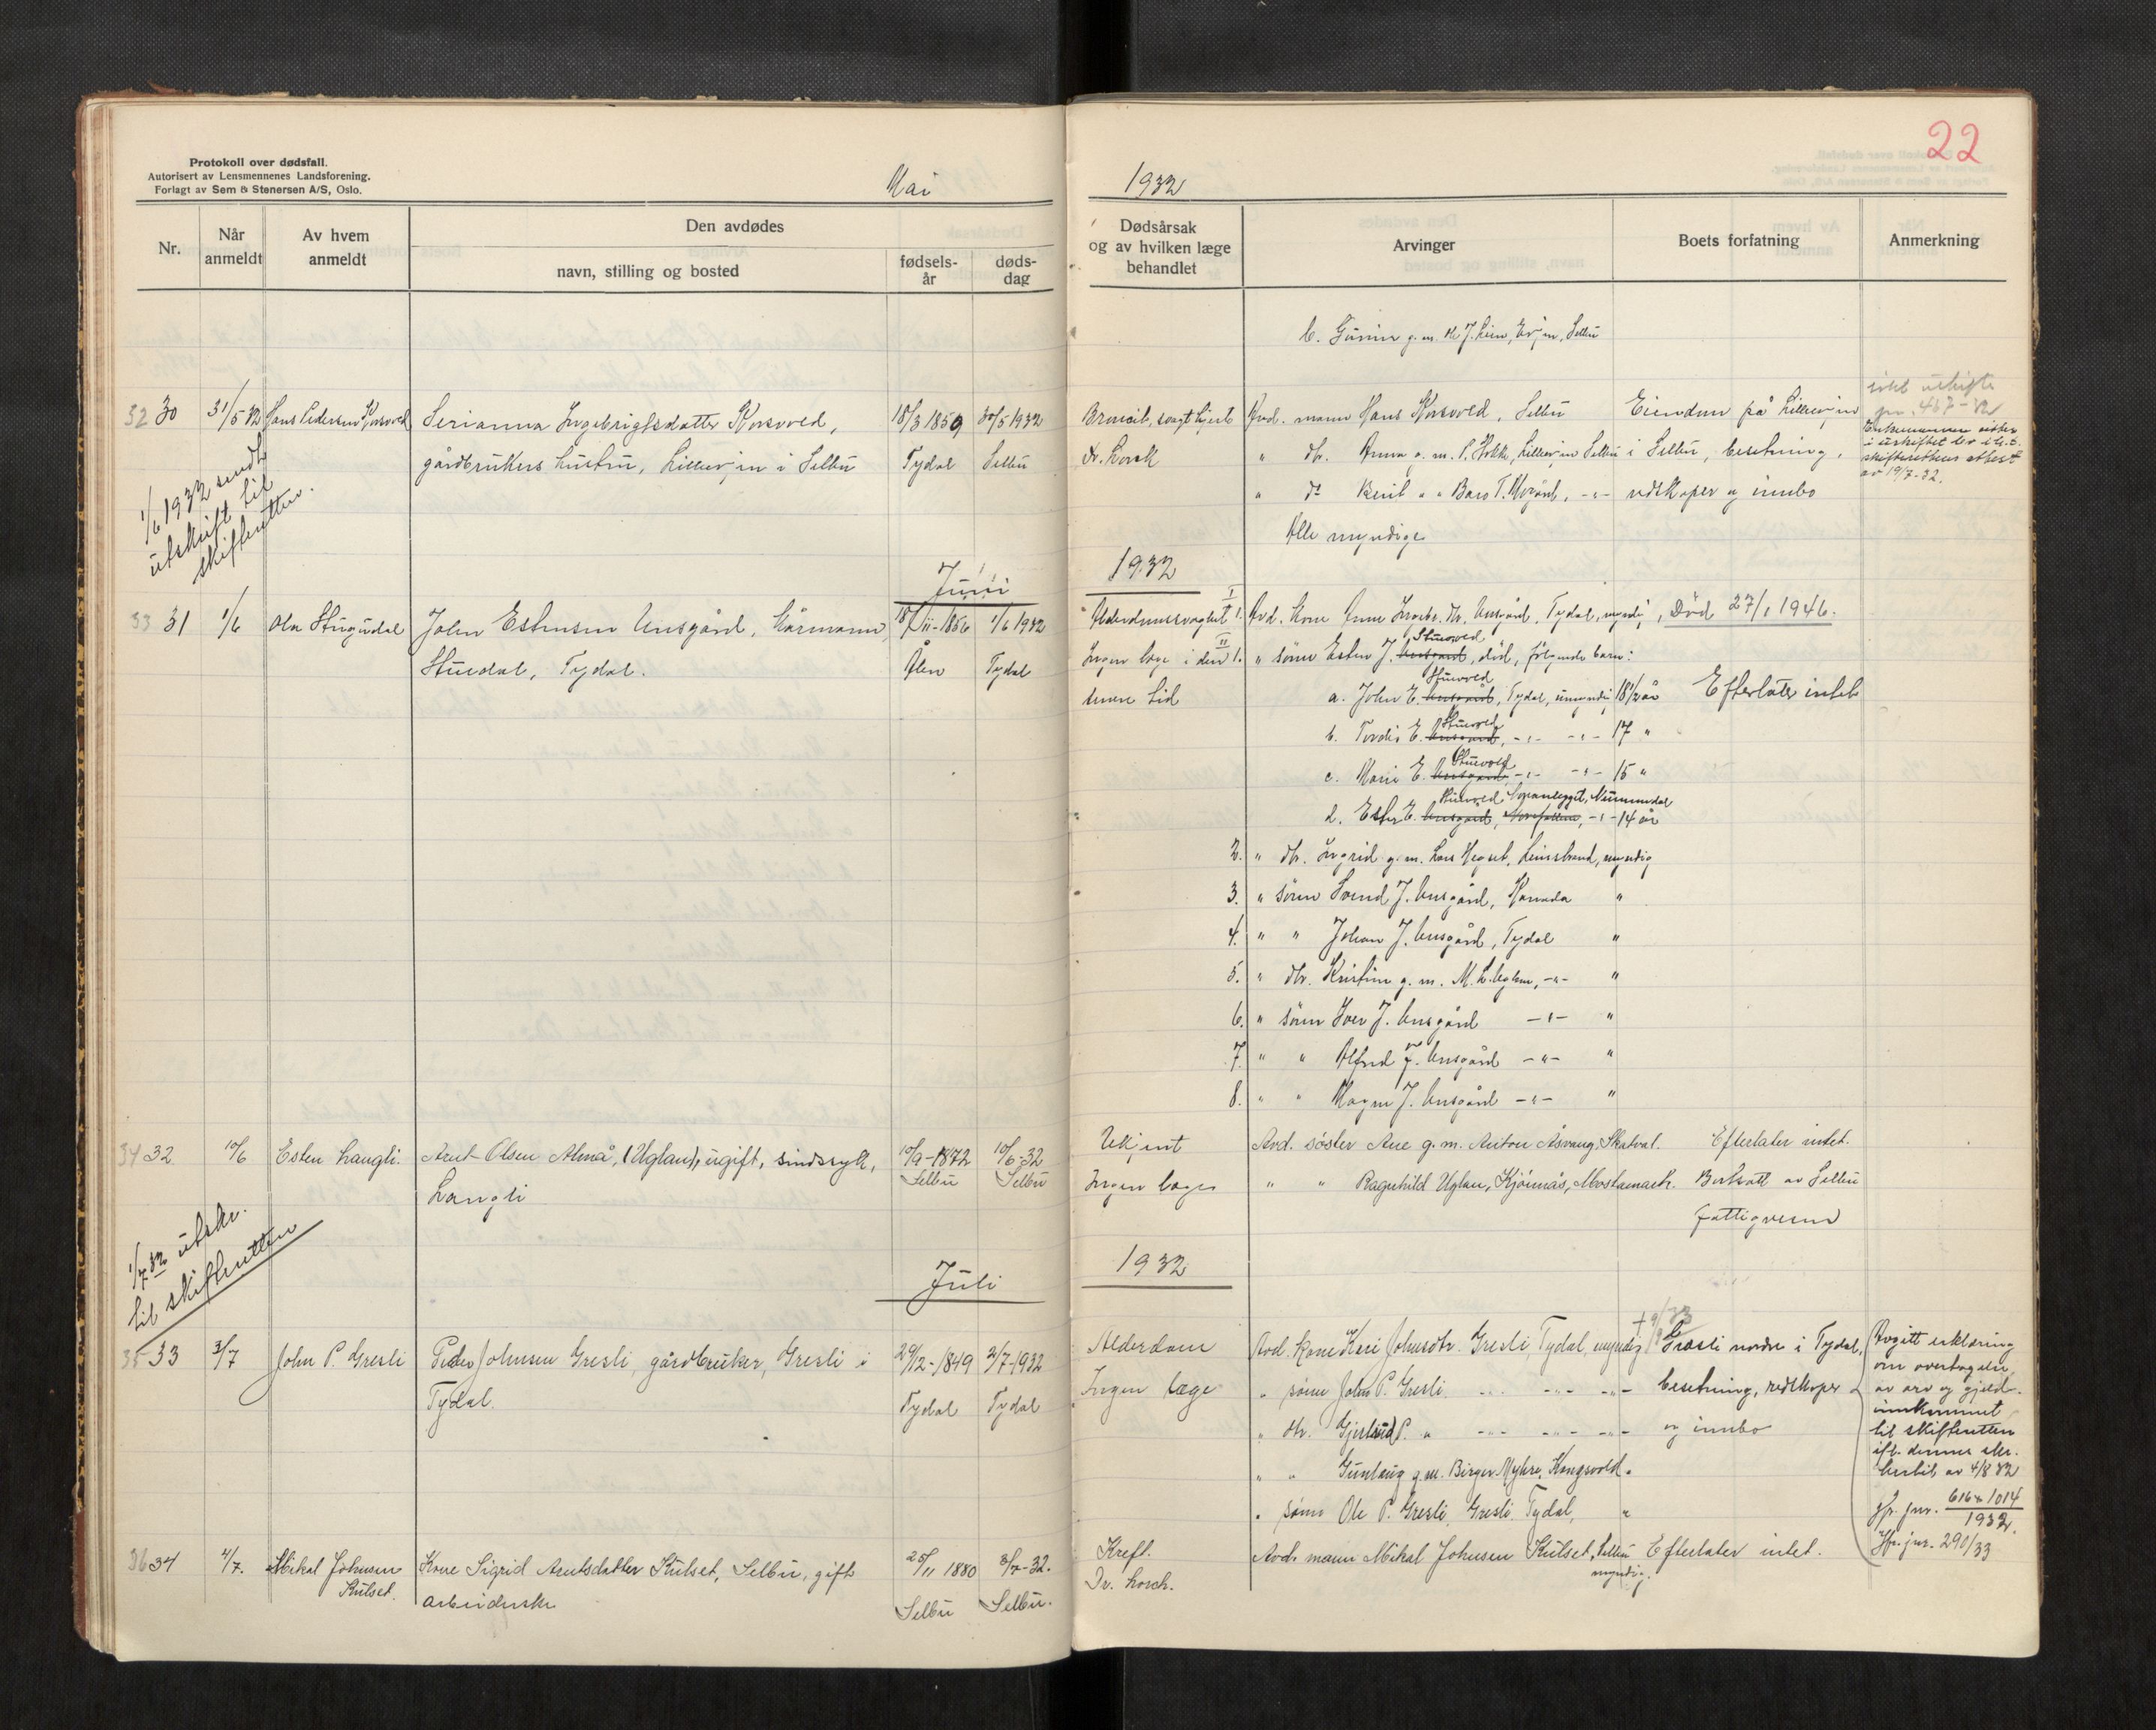 Protokoll over dødsfall.
Autorisert av Lensmennenes Landsforening.
Forlagt av Sem & Stenersen A/S, Oslo.
Mai
Nr.
Når anmeldt
Av hvem anmeldt
Den avdødes
navn, stilling og bosted
fødselsår
dødsdag
32 30 31/5 32 Hans Pedersen Korsvold Serianna Ingebrigtsdatter Korsvold, 18/3 1859 30/5 1932
gårdbrukers hustru, Lillevjen i Selbu Tydal Selbu
1/6 1932 sendt
utskrift til
skifteretten.
Juni
33 31 1/6 Ola Stugudal John Estensen Unsgård, kårmann 18/11-1856 1/6 1932
Stuedal, Tydal. Ålen Tydal
34 32 10/6 Esten Langli. Arnt Olsen Alenå, (Uglan), ugift, sindssyk, 10/9-1872 10/6-32
Langli Selbu Selbu
1/7 32 utskr.
til skifteretten
Juli
35 33 3/7 John P. Gresli Peder Johnsen Gresli, gårdbruker, Gresli i 29/12-1849 2/7-1932
Tydal. Tydal Tydal
36 34 4/7. Mikal Johnsen Kone Sigrid Arntsdatter Kulset, Selbu, gift 25/11 1880 3/7-32.
Kulset. arbeiderske Selbu Selbu.
22
1932
Dødsårsak
og av hvilken læge
behandlet
Arvinger
Boets forfatning
Anmerkning
b. Gurine g. m. J. Lien, Evjen, Selbu
Bronkit, svagt hjerte Avd. mann Hans Korsvold, Selbu Eiendom på Lillevjen
dr. Lorck " dtr. Anna g. m. P. Hokk, Lillevjen Selbu i Selbu, besetning,
" do Berit " " Baro T. Morset, -"- redskaper og innbo
Alle myndige
467-32
Enkemannen sitter
i uskiftet bo i h. t.
skifterettens attest
av 19/7-32.
1932
Alderdomssvaghet I 1. Avd. kone Anne Ingebr. dtr. Unsgård, Tydal, myndig, Død 27/1 1946.
Ingen læge i den II 1. " sønn Esten J. Unsgård Stuevold, død, følgende barn:
senere tid a. John E. Unsgård Stuevold, Tydal, umyndig 18 1/2 år Efterlater intet
b. Tordis E. Unsgård Stuevold, -"- -"- 17 "
c. Marie E. Unsgård Stuevold -"- -"- 15 "
d. Ester E. Unsgård Stuevold, Nummedal -"- 14 år
2. " dtr. Ingrid g. m. Lars Hegset, Leinstrand, myndig
3. " sønn Svend J. Unsgård, Kanada "
4. " " Johan J. Unsgård, Tydal "
5. " dtr. Kristine g. m. M. L. Uglem, -"- "
6. " sønn Iver J. Unsgård -"- "
7. " " Alfred J. Unsgård -"- "
8. " " Magne J. Unsgård -"- "
Ukjent Avd. søster Ane g. m. Anton Åsvang, Skatval. Efterlater intet.
Ingen læge " " Ragnhild Uglan, Kjønnås, Mostamark. Bekostt av Selbu
fattigvesen
1932
† 9/9 33
Alderdom Avd. kone Keri Johnsdtr. Gresli, Tydal, myndig Græsli nordre i Tydal,
Ingen læge " sønn John P. Gresli -"- -"- -"- besetning, redskaper
" dtr. Gjertrud P. " -"- -"- -"- og innbo
" " Gunlaug g. m. Birger Myhre, Kongsvold "
" sønn Ole P. Gresli, Gresli, Tydal, "
Avgitt erklæring
om overtagelse
av arv og gjeld
innkommet
til skifteretten
ifl. dennes skr.
hertil av 4/8 32
Jfr. jnr. 616 & 1014
1932.
Jfr. jnr. 290/33
Kreft. Avd. mann Mikal Johnsen Kulset, Selbu Efterlater intet.
Dr. Lorch. myndig.